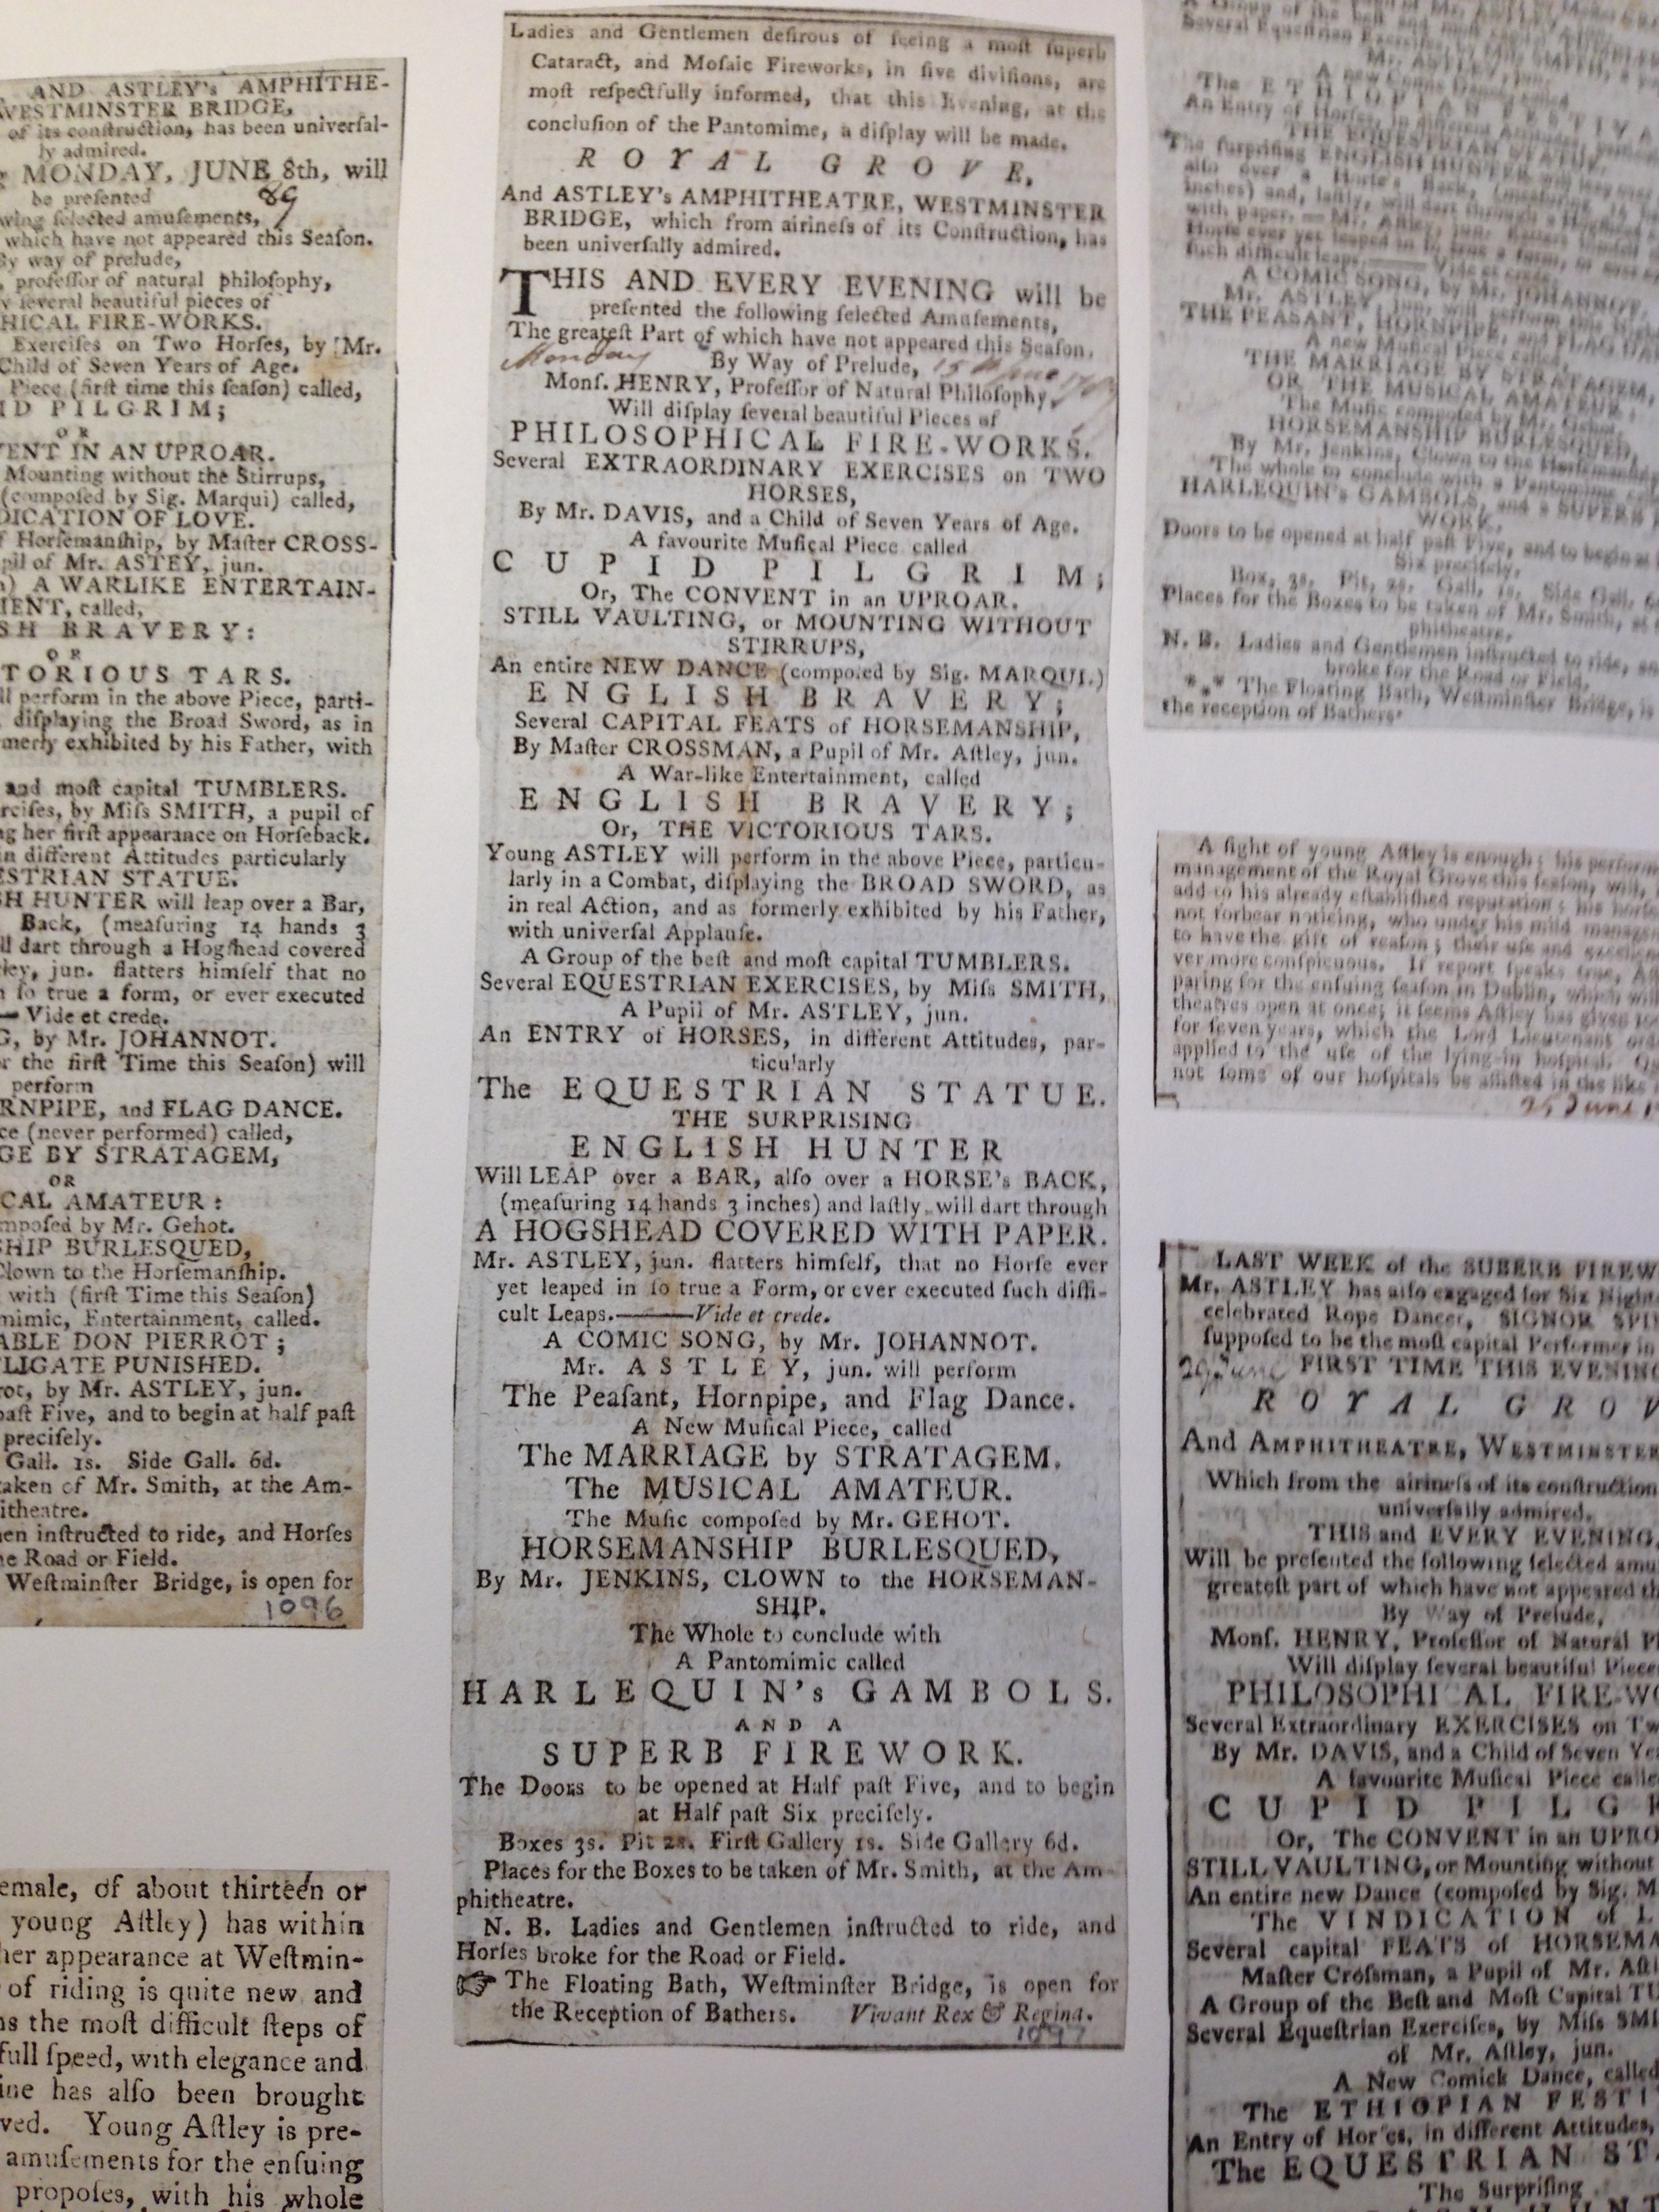 AND ASTLEY's AMPHITHE-
WESTMINSTER BRIDGE,
of its conſtruction, has been univerſal-
ly admired.
MONDAY, JUNE 8th, will
89
be preſented
wing ſelected amuſements,
which have not appeared this Seaſon.
By way of prelude,
, profeſſor of natural philoſophy,
y ſeveral beautiful pieces of
HICAL FIRE-WORKS.
Exerciſes on Two Horſes, by Mr.
Child of Seven Years of Age.
Piece (firſt time this ſeaſon) called,
ID PILGRIM;
OR
VENT IN AN UPROAR.
Mounting without the Stirrups,
(compoſed by Sig. Marqui) called,
DICATION OF LOVE.
f Horſemanſhip, by Maſter CROSS-
pil of Mr. ASTEY, jun.
) A WARLIKE ENTERTAIN-
IENT, called,
SH BRAVERY:
OR
TORIOUS TARS.
ll perform in the above Piece, parti-
diſplaying the Broad Sword, as in
merly exhibited by his Father, with
and moſt capital TUMBLERS.
rciſes, by Miſs SMITH, a pupil of
ng her firſt appearance on Horſeback.
in different Attitudes particularly
ESTRIAN STATUE.
SH HUNTER will leap over a Bar,
Back, (meaſuring 14 hands 3
ll dart through a Hogſhead covered
ley, jun. flatters himſelf that no
n ſo true a form, or ever executed
— Vide et crede.
G, by Mr. JOHANNOT.
r the firſt Time this Seaſon) will
perform
RNPIPE, and FLAG DANCE.
ce (never performed) called,
GE BY STRATAGEM,
OR
CAL AMATEUR:
mpoſed by Mr. Gehot.
SHIP BURLESQUED,
Clown to the Horſemanſhip.
with (firſt Time this Seaſon)
mimic, Entertainment, called.
ABLE DON PIERROT;
FLIGATE PUNISHED.
rot, by Mr. ASTLEY, jun.
paſt Five, and to begin at half paſt
preciſely.
Gall. 1s. Side Gall. 6d.
taken of Mr. Smith, at the Am-
itheatre.
en inſtructed to ride, and Horſes
e Road or Field.
Weſtminſter Bridge, is open for
1096
emale, of about thirteen or
young Aſtley) has within
her appearance at Weſtmin-
of riding is quite new and
ns the moſt difficult ſteps of
full ſpeed, with elegance and
ine has alſo been brought
ved. Young Aſtley is pre-
amuſements for the enſuing
propoſes, with his whole
Ladies and Gentlemen deſirous of ſeeing a moſt ſuperb
Cataract, and Moſaic Fireworks, in five diviſions, are
moſt reſpectfully informed, that this Evening, at the
concluſion of the Pantomime, a diſplay will be made.
ROYAL GROVE,
And ASTLEY's AMPHITHEATRE, WESTMINSTER
BRIDGE, which from airineſs of its Conſtruction, has
been univerſally admired.
THIS AND EVERY EVENING will be
preſented the following ſelected Amuſements,
The greateſt Part of which have not appeared this Seaſon.
Monday By Way of Prelude, 15 June
Monſ. HENRY, Profeſſor of Natural Philoſophy,
Will diſplay ſeveral beautiful Pieces of
PHILOSOPHICAL FIRE-WORKS.
Several EXTRAORDINARY EXERCISES on TWO
HORSES,
By Mr. DAVIS, and a Child of Seven Years of Age.
A favourite Muſical Piece called
CUPID PILGRIM;
Or, The CONVENT in an UPROAR.
STILL VAULTING, or MOUNTING WITHOUT
STIRRUPS,
An entire NEW DANCE (compoſed by Sig. MARQUI.)
ENGLISH BRAVERY;
Several CAPITAL FEATS of HORSEMANSHIP,
By Maſter CROSSMAN, a Pupil of Mr. Aſtley, jun.
A War-like Entertainment, called
ENGLISH BRAVERY;
Or, THE VICTORIOUS TARS.
Young ASTLEY will perform in the above Piece, particu-
larly in a Combat, diſplaying the BROAD SWORD, as
in real Action, and as formerly exhibited by his Father,
with univerſal Applauſe.
A Group of the beſt and moſt capital TUMBLERS.
Several EQUESTRIAN EXERCISES, by Miſs SMITH,
A Pupil of Mr. ASTLEY, jun.
An ENTRY of HORSES, in different Attitudes, par-
ticularly
The EQUESTRIAN STATUE.
THE SURPRISING
ENGLISH HUNTER
Will LEAP over a BAR, alſo over a HORSE's BACK,
(meaſuring 14 hands 3 inches) and laſtly, will dart through
A HOGSHEAD COVERED WITH PAPER.
Mr. ASTLEY, jun. flatters himſelf, that no Horſe ever
yet leaped in ſo true a Form, or ever executed ſuch diffi-
cult Leaps.———Vide et crede.
A COMIC SONG, by Mr. JOHANNOT.
Mr. ASTLEY, jun. will perform
The Peaſant, Hornpipe, and Flag Dance.
A New Muſical Piece, called
The MARRIAGE by STRATAGEM.
The MUSICAL AMATEUR.
The Muſic compoſed by Mr. GEHOT.
HORSEMANSHIP BURLESQUED,
By Mr. JENKINS, CLOWN to the HORSEMAN-
SHIP.
The Whole to conclude with
A Pantomimic called
HARLEQUIN's GAMBOLS.
AND A
SUPERB FIREWORK.
The Doors to be opened at Half paſt Five, and to begin
at Half paſt Six preciſely.
Boxes 3s. Pit 2s. Firſt Gallery 1s. Side Gallery 6d.
Places for the Boxes to be taken of Mr. Smith, at the Am-
phitheatre.
N. B. Ladies and Gentlemen inſtructed to ride, and
Horſes broke for the Road or Field.
☞ The Floating Bath, Weſtminſter Bridge, is open for
the Reception of Bathers. Vivant Rex & Regina.
1097
Several Equeſtrian Exerciſes, by Miſs SMITH,
Mr. ASTLEY, jun.
A new Comic Dance, called
The ETHIOPIAN FESTIVA
An Entry of Horſes, in different Attitudes,
THE EQUESTRIAN STATUE.
The ſurpriſing ENGLISH HUNTER will leap over
alſo over a Horſe's Back, (meaſuring 14
inches) and, laſtly, will dart through a Hogſhead
with paper.—Mr. Aſtley, jun. flatters himſelf
Horſe ever yet leaped in ſo true a form, or
ſuch difficult leaps.——Vide et crede.
A COMIC SONG, by Mr. JOHANNOT.
Mr. ASTLEY, jun. will perform
THE PEASANT, HORNPIPE, and FLAG DA
A new Muſical Piece called,
THE MARRIAGE BY STRATAGEM,
OR THE MUSICAL AMATEUR;
The Muſic compoſed by Mr. Gehot.
HORSEMANSHIP BURLESQUED,
By Mr. Jenkins, Clown to the Horſemanſhip
The whole to conclude with a Pantomime
HARLEQUIN's GAMBOLS, and a SUPERB
WORK.
Doors to be opened at half paſt Five, and to begin at
Six preciſely.
Box, 3s. Pit, 2s. Gall. 1s. Side Gall. 6
Places for the Boxes to be taken of Mr. Smith, at
phitheatre.
N. B. Ladies and Gentlemen inſtructed to ride,
broke for the Road or Field.
*** The Floating Bath, Weſtminſter Bridge, is
the reception of Bathers.
A ſight of young Aſtley is enough; his perform
management of the Royal Grove this ſeaſon, will,
add to his already eſtabliſhed reputation; his horſe
not forbear noticing, who under his mild manage
to have the gift of reaſon; their uſe and excellen
ver more conſpicuous. If report ſpeaks true,
paring for the enſuing ſeaſon in Dublin, which will
theatres open at once; it ſeems Aſtley has given
for ſeven years, which the Lord Lieutenant
applied to the uſe of the lying-in hoſpital.
not ſome of our hoſpitals be aſſiſted in the like
25 June
LAST WEEK of the SUBERB FIREW
Mr. ASTLEY has alſo engaged for Six Night
celebrated Rope Dancer, SIGNOR SPI
ſuppoſed to be the moſt capital Performer in
29 June FIRST TIME THIS EVENING
ROYAL GROV
And AMPHITHEATRE, WESTMINSTER
Which from the airineſs of its conſtruction
univerſally admired.
THIS and EVERY EVENING,
Will be preſented the following ſelected amu
greateſt part of which have not appeared th
By Way of Prelude,
Monſ. HENRY, Profeſſor of Natural P
Will diſplay ſeveral beautiful Piece
PHILOSOPHICAL FIRE-WO
Several Extraordinary EXERCISES on Tw
By Mr. DAVIS, and a Child of Seven Ye
A favourite Muſical Piece calle
CUPID PILG
Or, The CONVENT in an UPRO
STILL VAULTING, or Mounting without
An entire new Dance (compoſed by Sig. M
The VINDICATION of L
Several capital FEATS of HORSEMA
Maſter Croſsman, a Pupil of Mr. Aſtl
A Group of the Beſt and Moſt Capital TU
Several Equeſtrian Exerciſes, by Miſs SMI
of Mr. Aſtley, jun.
A New Comick Dance, called
The ETHIOPIAN FESTI
An Entry of Horſes, in different Attitudes,
The EQUESTRIAN ST
The Surpriſing